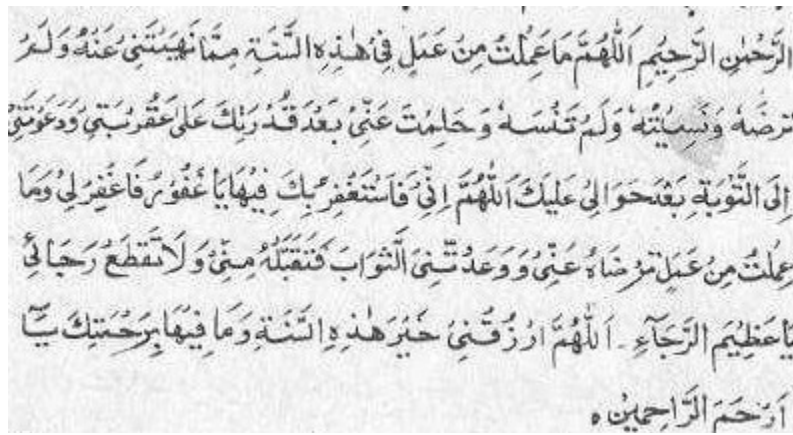 الرَّحْمٰنِ الرَّحِيْمِ اَللّٰهُمَّ مَا عَمِلْتُ مِنْ عَمَلٍ فِيْ هٰذِهِ السَّنَةِ مِمَّا نَهَيْتَنِيْ عَنْهُ وَلَمْ
تَرْضَهُ وَنَسِيْتُهٗ وَلَمْ تَنْسَهٗ وَحَلِمْتَ عَنِّيْ بَعْدَ قُدْرَتِكَ عَلٰى عَقُوْبَتِيْ وَدَعَوْتَنِيْ
اِلَى التَّوْبَةِ بَعْدَ اَللّٰهُمَّ اِنِّيْ فَاسْتَغْفِرُ بِكَ فِيْهَا يَا غَفُوْرُ فَاغْفِرْ لِيْ وَمَا
عَمِلْتُ مِنْ عَمَلٍ تَرْضَاهُ عَنِّيْ وَوَعَدْتَّنِيْ الثَّوَابَ فَتَقَبَّلْهُ مِنِّيْ وَلَا تَقْطَعْ رَجَائِيْ
يَا عَظِيْمَ الرَّجَآءِ ۔ اَللّٰهُمَّ ارْزُقْنِيْ خَيْرَ هٰذِهِ السَّنَةِ وَمَا فِيْهَا بِرَحْمَتِكَ يَآ
اَرْحَمَ الرَّاحِمِيْنَ ه